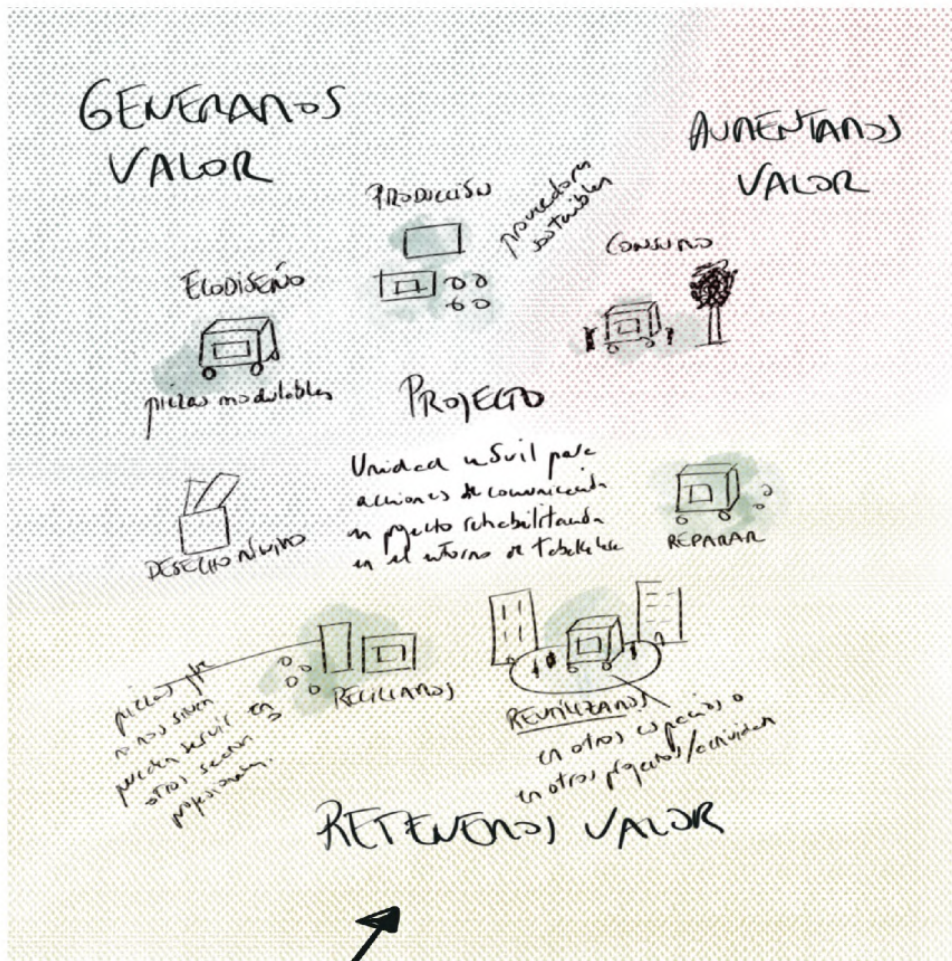 GENERAMOS
VALOR
AUMENTAMOS
VALOR
PRODUCCIÓN
proveedores
sostenibles
CONSUMO
ECODISEÑO
piezas modulables
PROYECTO
Unidad móvil para
acciones de comunicación
en proyecto rehabilitación
en el entorno de
DESECHO MÍNIMO
REPARAR
RECICLAMOS
piezas que
no nos sirven
pueden servir en
otros sectores
profesionales.
REUTILIZAMOS
en otros espacios o
en otros proyectos/actividades
RETENEMOS VALOR